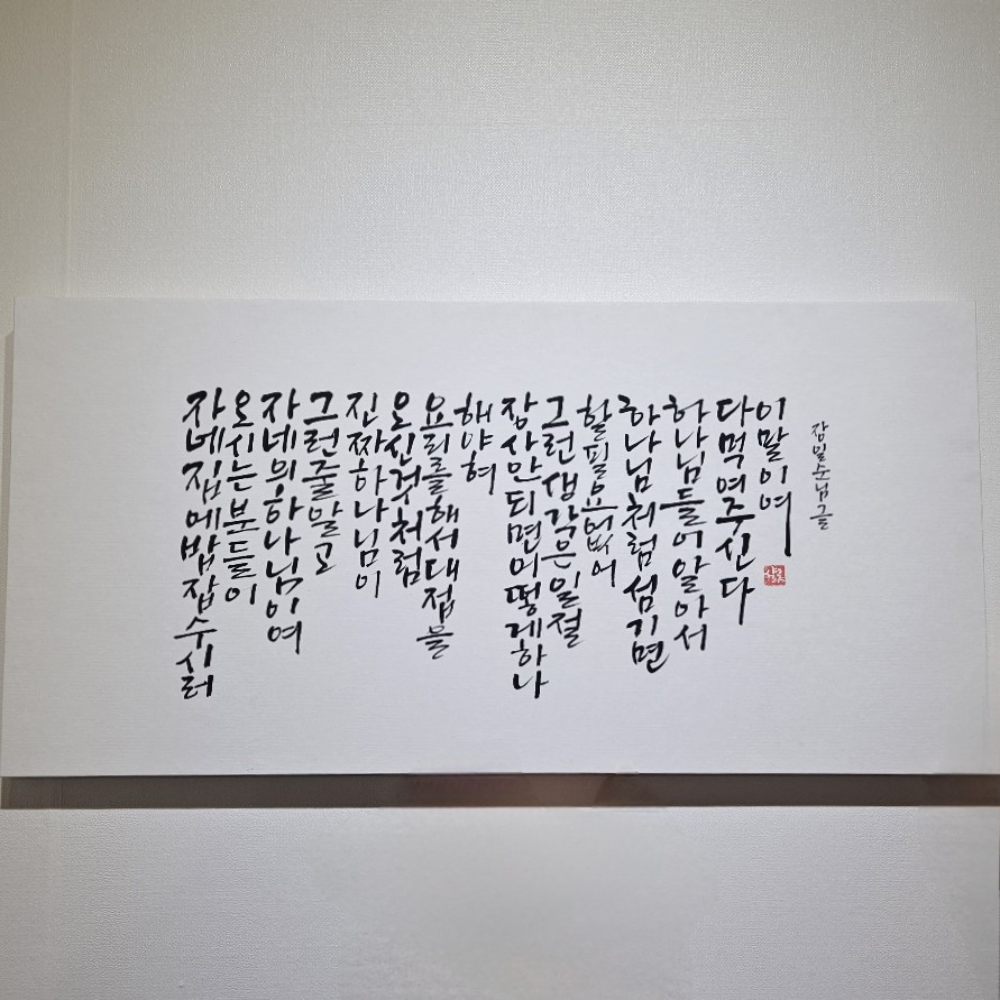 자네집에밥잡수시러
오시는분들이
자네의하나님이여
그런줄알고
진짜하나님이
오신거처럼
요리를해서대접을
해야혀
장사안되면어떻게하나
그런생각은일절
할필요없어
하나님처럼섬기면
하나님들이알아서
다먹여주신다
이말이여
장일순님글